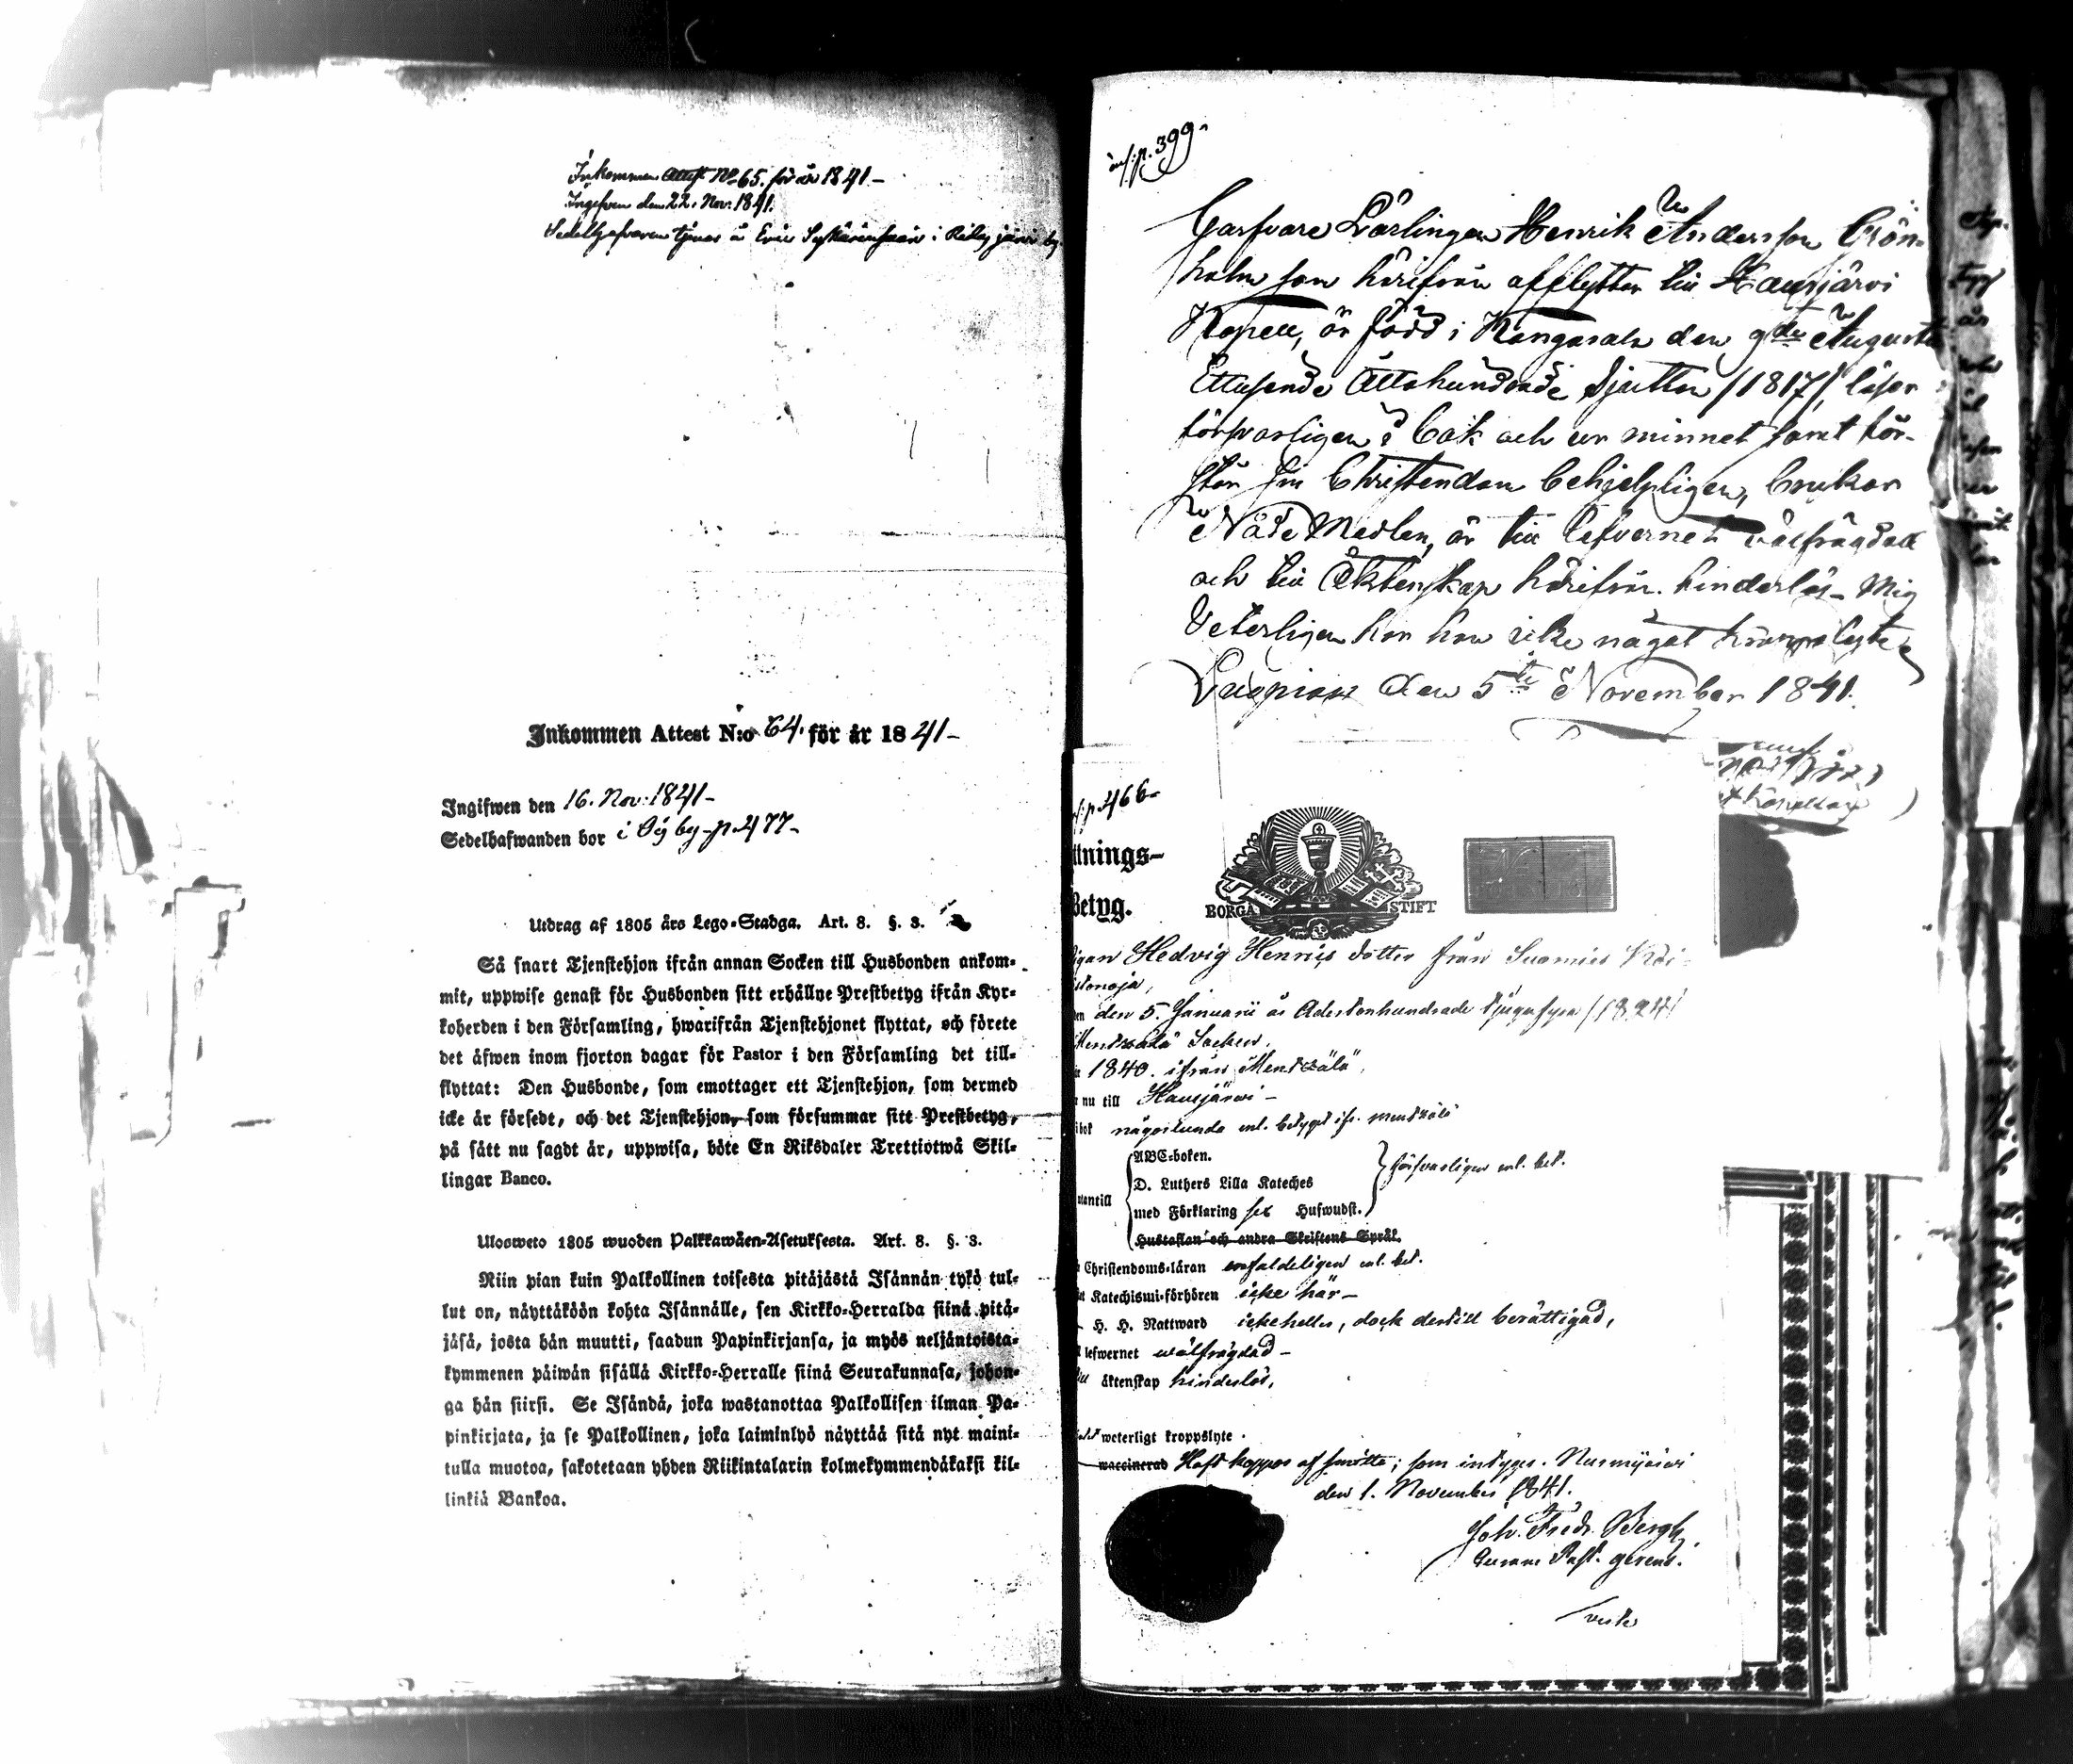 Inkommen Attest No 65. för år 1841 –
Ingifven den 22. Nov. 1841.
Sedelhafvaren tjenar å Eric i by
Inkommen Attest N:o 64. för år 1841 –
Ingifwen den 16. Nov: 1841 –
Sedelhafwanden bor i by – p. 477 –
Utdrag af 1805 års Lego-Stadga. Art. 8. §. 3.
Så snart Tjenstehjon ifrån annan Socken till Husbonden ankom-
mit, uppwise genast för Husbonden sitt erhållne Prestbetyg ifrån Kyr-
koherden i den Församling, hwarifrån Tjenstehjonet flyttat, och förete
det äfwen inom fjorton dagar för Pastor i den Församling det till-
flyttat: Den Husbonde, som emottager ett Tjenstehjon, som dermed
icke är försedt, och det Tjenstehjon, som försummar sitt Prestbetyg,
på sätt nu sagdt är, uppwisa, böte En Riksdaler Trettiotwå Skil-
lingar Banco.
Ulosweto 1805 wuoden Palkkawäen-Asetuksesta. Art. 8. §. 3.
Niin pian kuin Palkollinen toisesta pitäjästä Isännän tykö tul-
lut on, näyttäköön kohta Isännälle, sen Kirkko-Herralda siinä pitä-
jäsä, josta hän muutti, saadun Papinkirjansa, ja myös neljäntoista-
kymmenen päiwän sisällä Kirkko-Herralle siinä Seurakunnasa, johon-
ga hän siirsi. Se Isändä, joka wastanottaa Palkollisen ilman Pa-
pinkirjata, ja se Palkollinen, joka laiminlyö näyttää sitä nyt maini-
tulla muotoa, sakotetaan yhden Riikintalarin kolmekymmendäkaksi kil-
linkiä Bankoa.
inf: p. 399.
Garfvare Lärlingen Henrik Andersson Grön-
holm som härifrån afflytter till Hausjärvi
Kapell, är född i Kangasala den 9de Augusti
Ettusende Åttahundrade Sjutton /1817/, läser
försvarligen i bok och ur minnet samt för-
står sin Christendom behjelpligen, brukar
Nåde Medlen, är till lefvernet välfrägdad
och till Äktenskap härifrån hinderlös – Mig
Veterligen har han icke något kroppslyte
den 5te November 1841.
p. 466 –
ttnings-
Betyg.
BORGÅ STIFT
igan Hedvig Henrics dotter från Suomies
den 5. Januarii år Adertonhundrade tjugufyra /1824/
Mentzälä Socken.
1840. ifrån Mentzälä,
nu till Hausjärvi –
i bok någorlunda enl. betyget ifr. Mentzälä
ABC-boken.
D. Luthers Lilla Kateches
utantill
med Förklaring sex Hufwudst.
försvarligen enl. bet.
Hustaflan och andra Skriftens Språk.
Christendoms-läran enfaldeligen enl. bet.
Katechismi-förhören icke här –
H. H. Nattward icke heller, dock dertill berättigad,
lefwernet wälfrägdad –
äktenskap hinderlös,
weterligt kroppslyte
waccinerad Haft koppor af smitta; som intygar. Nurmijärvi
den 1. November 1841.
Joh. Fredr. Bergh,
Past. gerens.